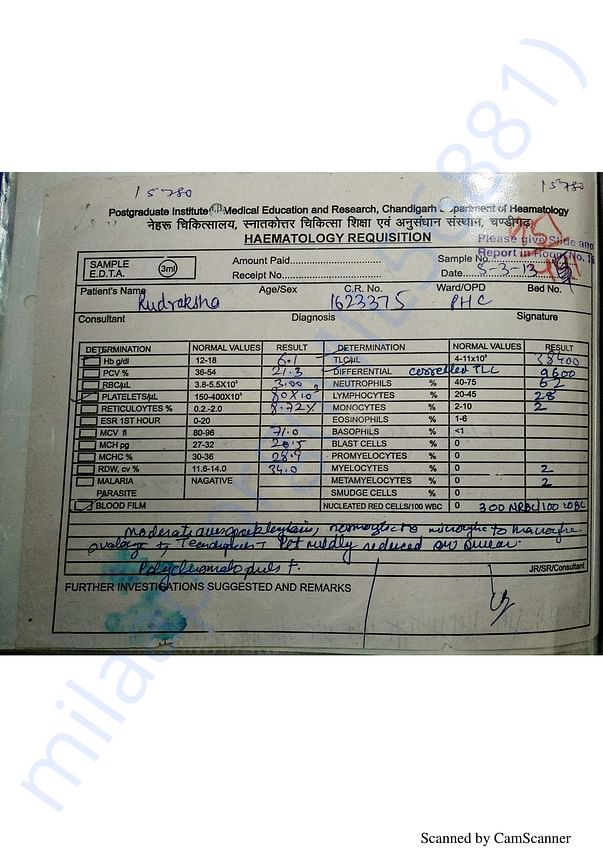 15780
15780
Postgraduate Institute Medical Education and Research, Chandigarh Department of Heamatology
नेहरू चिकित्सालय, स्नातकोत्तर चिकित्सा शिक्षा एवं अनुसंधान संस्थान, चण्डीगढ़
HAEMATOLOGY REQUISITION
Please give Slide and
Report in Room No.
SAMPLE E.D.T.A. 3ml
Amount Paid
Sample No.
Receipt No.
Date 5-3-13
Patient's Name Rudraksha Age/Sex C.R. No. 1623375 Ward/OPD PHC Bed No.
Consultant Diagnosis Signature
DETERMINATION NORMAL VALUES RESULT DETERMINATION NORMAL VALUES RESULT
Hb g/dl 12-18 6.1 TLC/µL 4-11x10³ 38400
PCV % 36-54 21.3 DIFFERENTIAL corrected TLC 9600
RBC/µL 3.8-5.5X10⁶ 3.00 NEUTROPHILS % 40-75 62
PLATELETS/µL 150-400X10³ 80X10³ LYMPHOCYTES % 20-45 28
RETICULOYTES % 0.2.-2.0 8.72% MONOCYTES % 2-10 2
ESR 1ST HOUR 0-20 EOSINOPHILS % 1-6
MCV fl 80-96 71.0 BASOPHILS % <1
MCH pg 27-32 20.5 BLAST CELLS % 0
MCHC % 30-36 28.9 PROMYELOCYTES % 0
RDW, cv % 11.6-14.0 34.0 MYELOCYTES % 0 2
MALARIA NAGATIVE METAMYELOCYTES % 0 2
PARASITE SMUDGE CELLS % 0
BLOOD FILM NUCLEATED RED CELLS/100 WBC 0 300 NRBC/100 WBC
Moderate anisopoikilocytosis, normocytic to microcytic to macrocytic.
mildly reduced on smear.
Polychromatophils +.
JR/SR/Consultant
FURTHER INVESTIGATIONS SUGGESTED AND REMARKS
Scanned by CamScanner